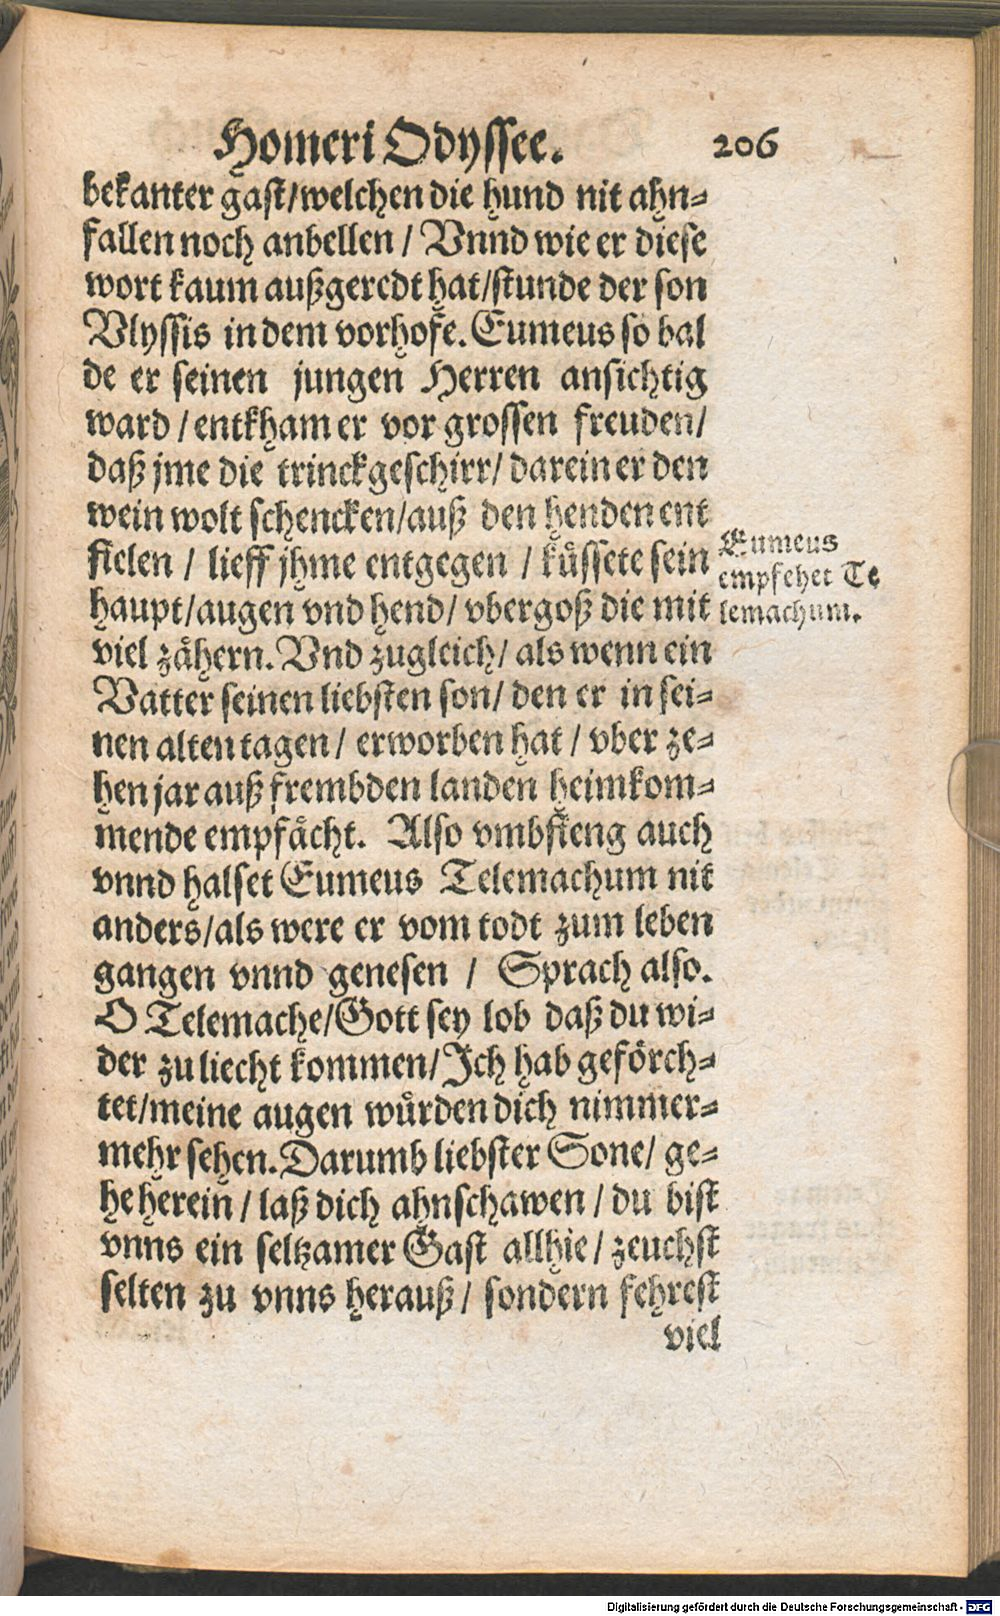 Homeri Odyssee. 206
bekanter gast/welchen die hund nit ahn=
fallen noch anbellen / Vnnd wie er diese
wort kaum außgeredt hat/stunde der son
Vlyssis in dem vorhofe. Eumeus so bal
de er seinen jungen Herren ansichtig
ward / entkham er vor grossen freuden/
daß jme die trinckgeschirr/ darein er den
wein wolt schencken/auß den henden ent
fielen / lieff jhme entgegen / küssete sein
haupt/augen vnd hend/ vbergoß die mit
viel zähern. Vnd zugleich/ als wenn ein
Vatter seinen liebsten son/ den er in sei=
nen alten tagen / erworben hat / vber ze=
hen jar auß frembden landen heimkom=
mende empfächt. Also vmbfieng auch
vnnd halset Eumeus Telemachum nit
anders/als were er vom todt zum leben
gangen vnnd genesen / Sprach also.
O Telemache/Gott sey lob daß du wi=
der zu liecht kommen/Ich hab geförch=
tet/meine augen würden dich nimmer=
mehr sehen. Darumb liebster Sone/ ge=
he herein / laß dich ahnschawen / du bist
vnns ein seltzamer Gast allhie / zeuchst
selten zu vnns herauß / sondern fehrest
viel
Eumeus
empfehet Te
lemachum.
Digitalisierung gefördert durch die Deutsche Forschungsgemeinschaft - DFG